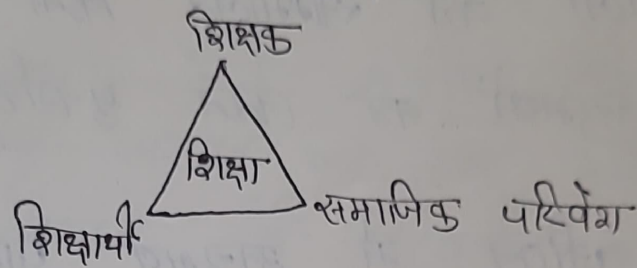 शिक्षक
शिक्षा
शिक्षार्थी समाजिक परिवेश